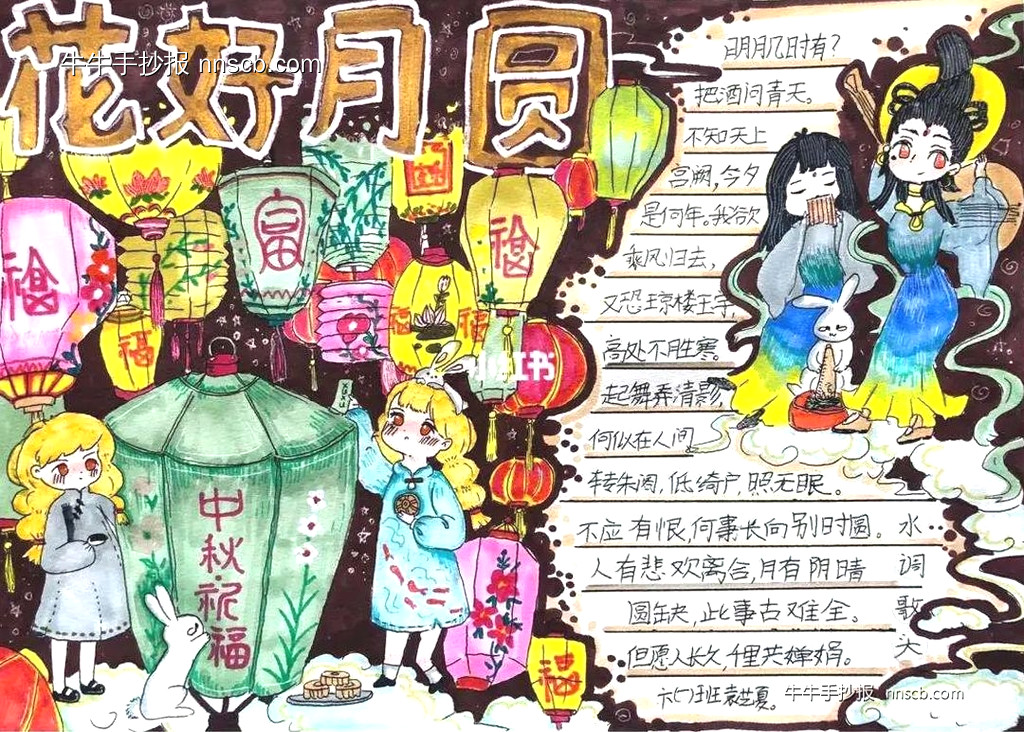 花好月圆
牛牛手抄报 nnscb.com
明月几时有?
把酒问青天。
不知天上
宫阙,今夕
是何年。我欲
乘风归去,
又恐琼楼玉宇,
高处不胜寒。
起舞弄清影,
何似在人间
转朱阁,低绮户,照无眠。
不应有恨,何事长向别时圆。
人有悲欢离合,月有阴晴
圆缺,此事古难全。
但愿人长久,千里共婵娟。
水调歌头
六(7)班袁芝夏。
牛牛手抄报 nnscb.com
福
富
福
福
福
福
小红书
中秋·祝福
福